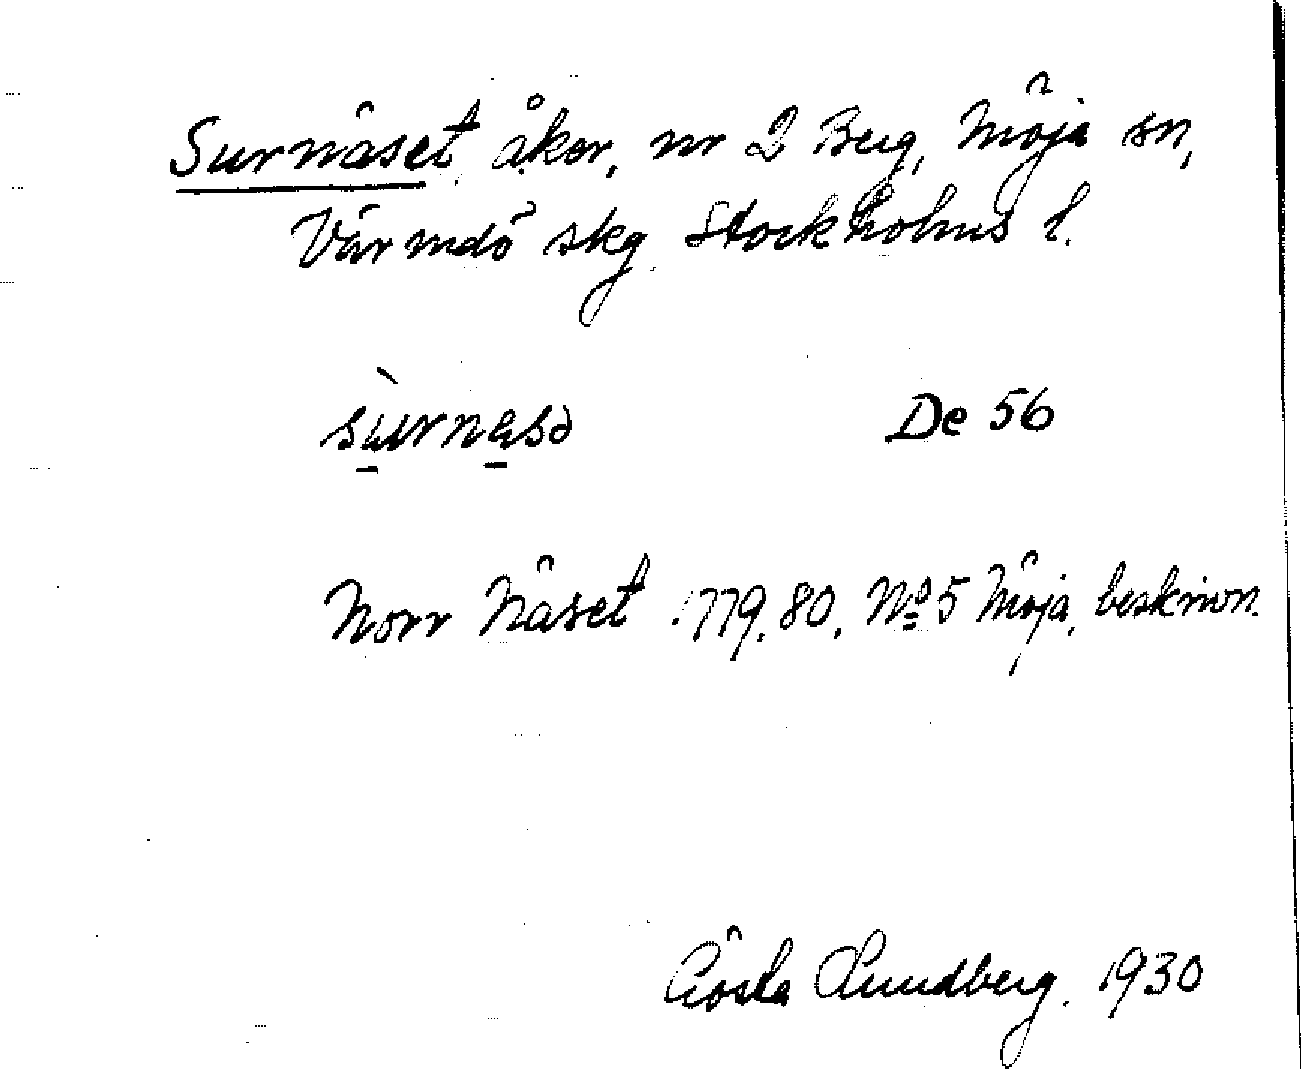 Surnäset, åker, nr 2 Berg, Möja sn,
Värmdö skg Stockholms l.
sùrnäsə De 56
Norr Näset 1779.80. No 5 Möja, beskrivn.
Gösta Lundberg. 1930